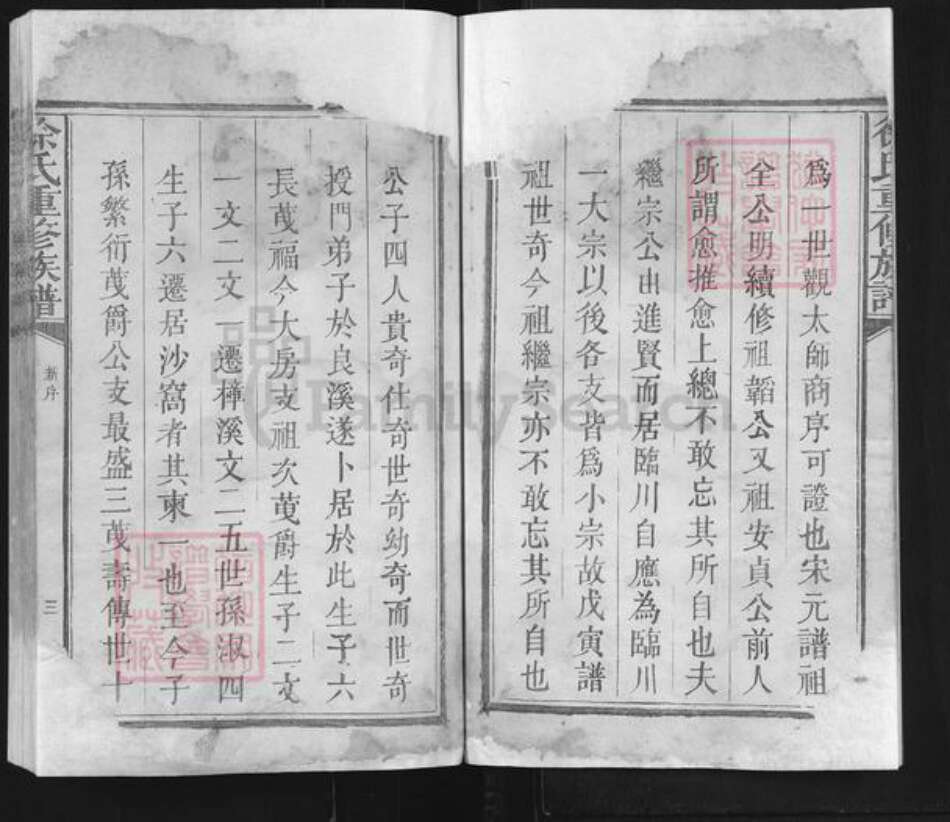 為一世觀太師商序可證也宋元譜祖
全公明續修祖韜公又祖安貞公前人
所謂愈推愈上總不敢忘其所自也夫
繼宗公由進賢而居臨川自應為臨川
一大宗以後各支皆為小宗故戊寅譜
祖世奇今祖繼宗亦不敢忘其所自也
公子四人貴奇仕奇世奇幼奇而世奇
授門弟子於良溪遂卜居於此生子六
長茂福今大房支祖次茂爵生子二文
一文二文一遷樟溪文二五世孫淑四
生子六遷居沙窩者其柬一也至今子
孫繁衍茂爵公支最盛三茂壽傳世十
徐氏重修族譜
新序
三
FamilySearch